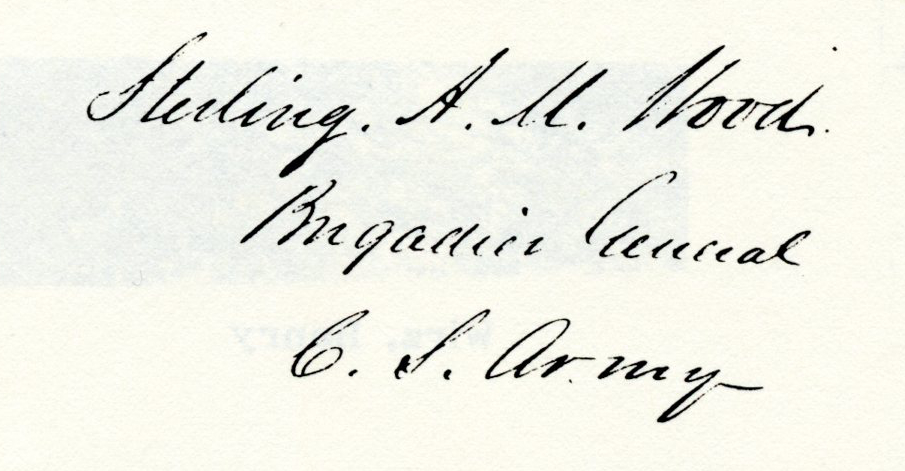 Sterling. A. M. Wood.
Brigadier General
C. S. Army
Wirz, Henry